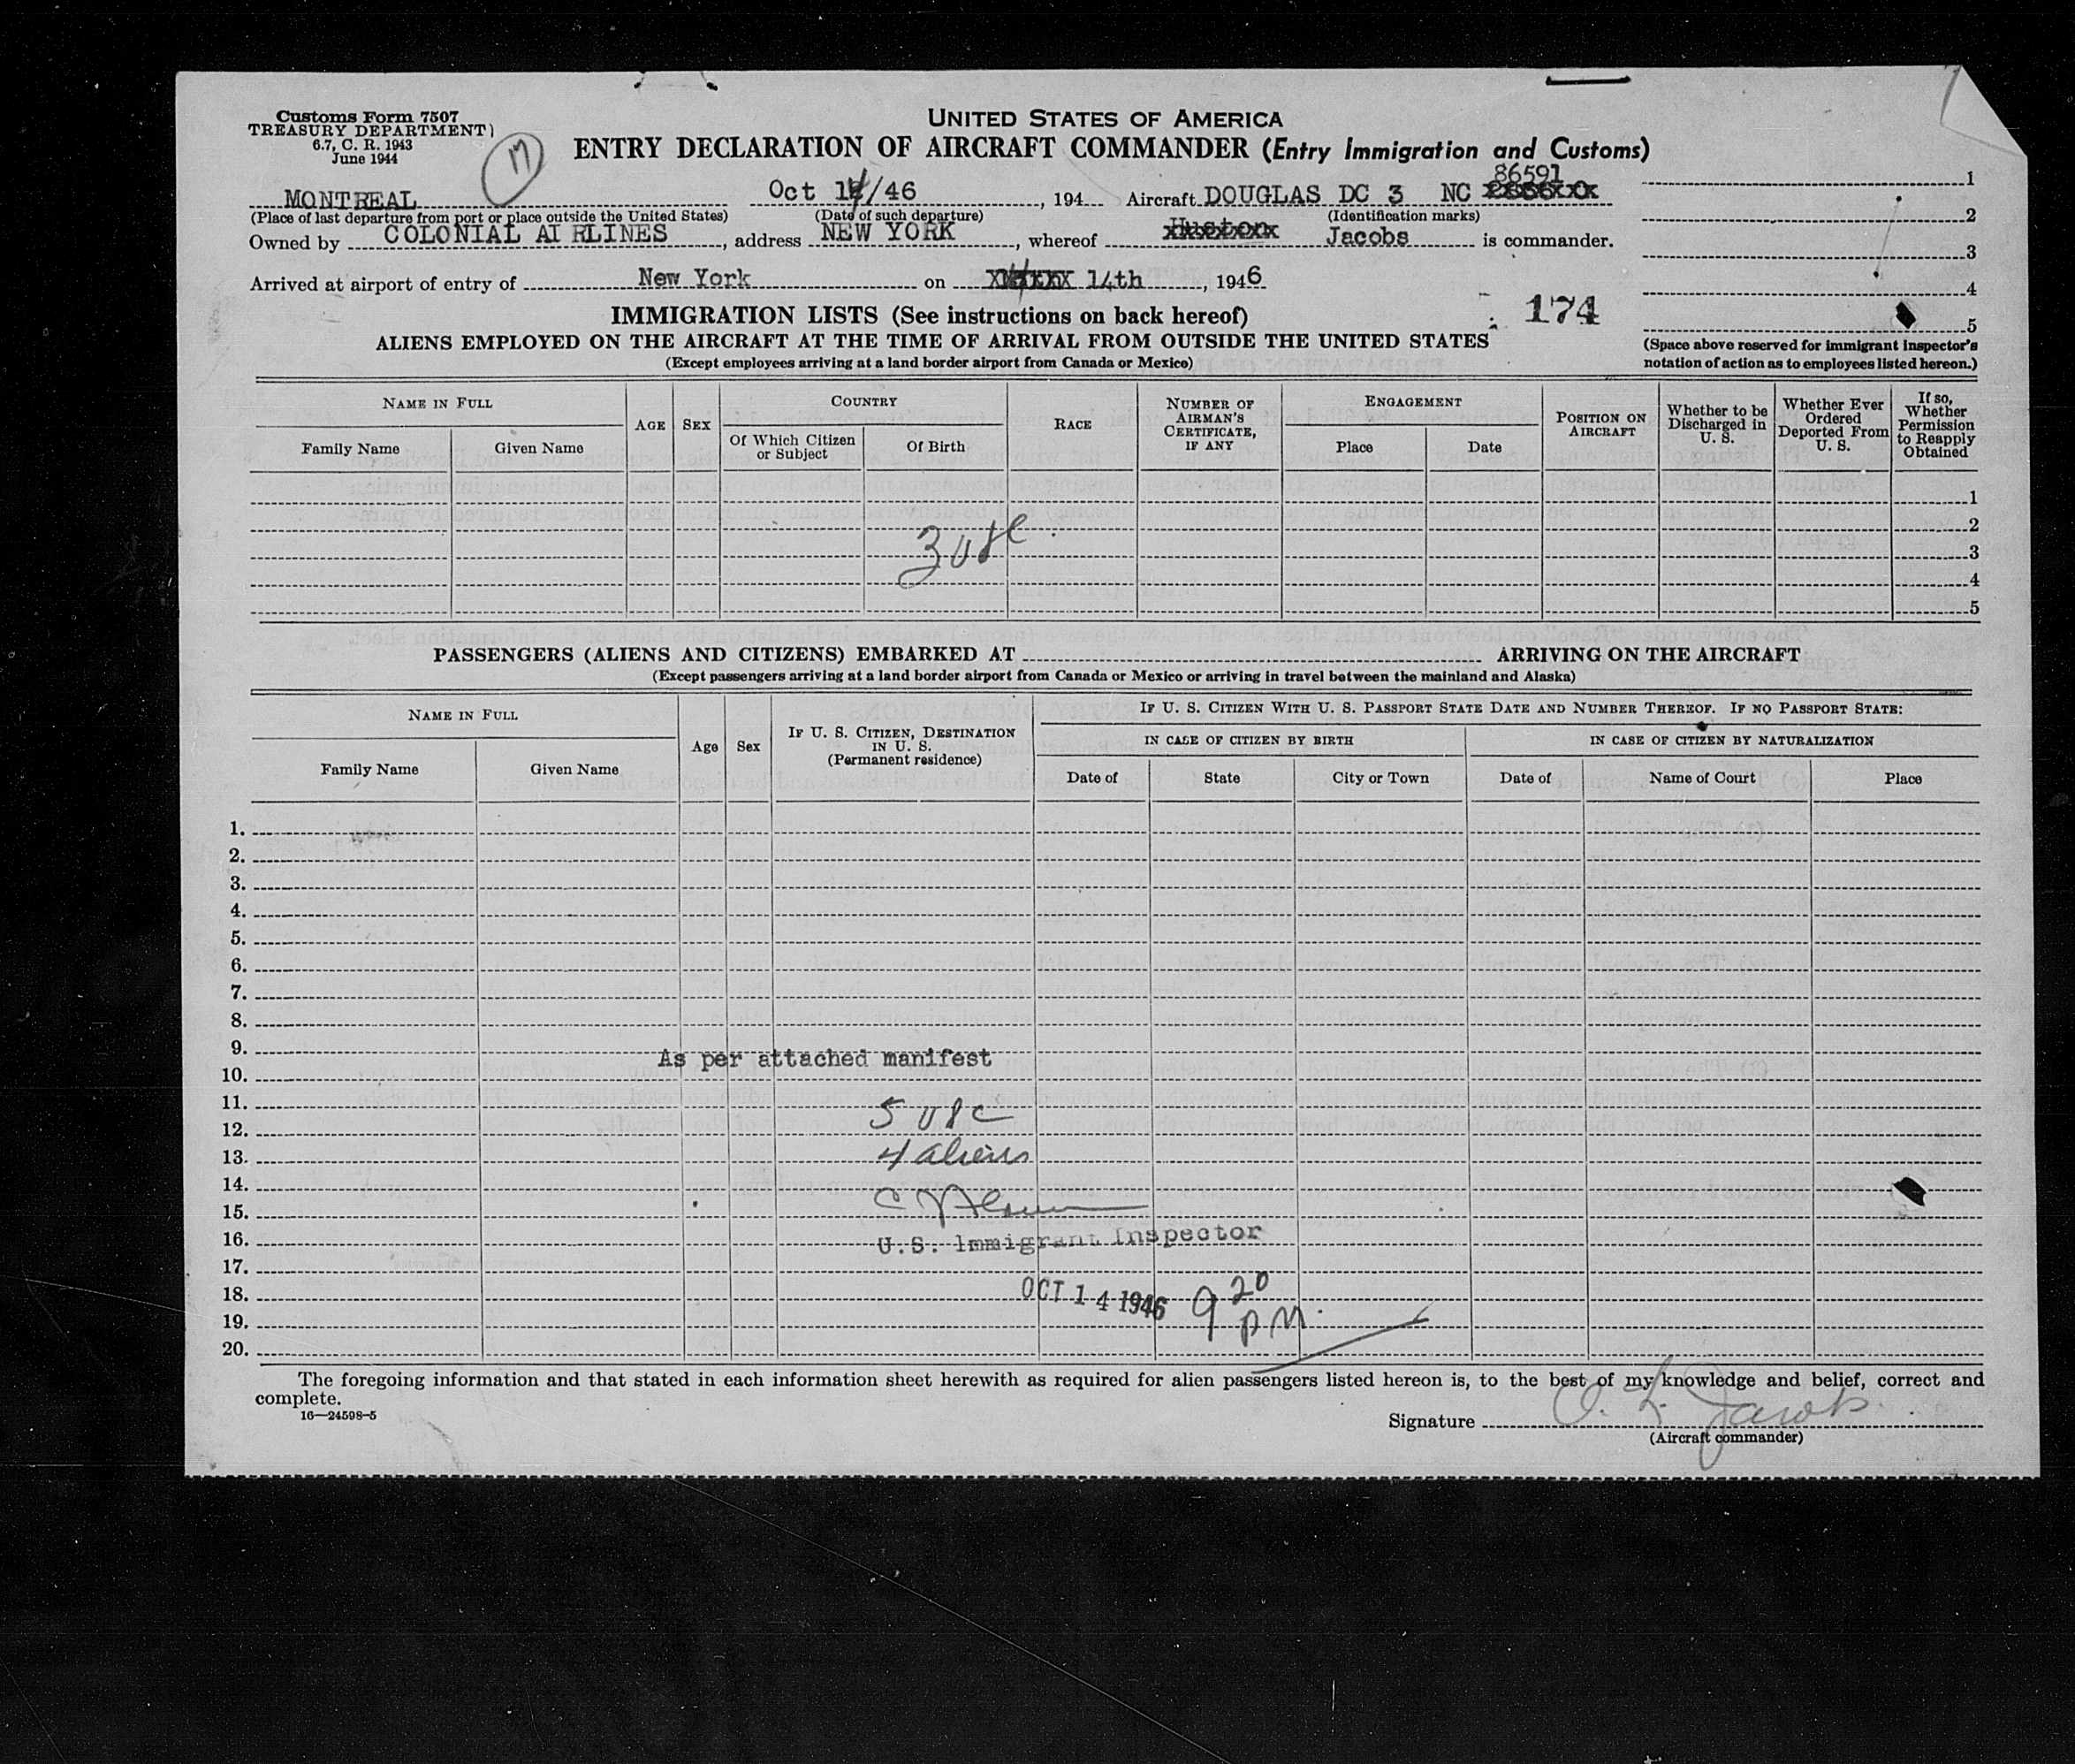 Customs Form 7507
TREASURY DEPARTMENT)
6.7, C. R. 1943
June 1944
17
UNITED STATES OF AMERICA
ENTRY DECLARATION OF AIRCRAFT COMMANDER (Entry Immigration and Customs)
86591
MONTREAL Oct 14/46, 194 Aircraft DOUGLAS DC 3 NC
(Place of last departure from port or place outside the United States) (Date of such departure) (Identification marks)
Owned by COLONIAL AIRLINES, address NEW YORK, whereof Huston Jacobs is commander.
Arrived at airport of entry of New York on 14th, 1946
1
2
3
4
5
(Space above reserved for immigrant inspector's
notation of action as to employees listed hereon.)
174
IMMIGRATION LISTS (See instructions on back hereof)
ALIENS EMPLOYED ON THE AIRCRAFT AT THE TIME OF ARRIVAL FROM OUTSIDE THE UNITED STATES
(Except employees arriving at a land border airport from Canada or Mexico)
NAME IN FULL
Family Name
Given Name
AGE
SEX
COUNTRY
Of Which Citizen
or Subject
Of Birth
RACE
NUMBER OF
AIRMAN'S
CERTIFICATE,
IF ANY
ENGAGEMENT
Place
Date
POSITION ON
AIRCRAFT
Whether to be
Discharged in
U. S.
Whether Ever
Ordered
Deported From
U. S.
If so,
Whether
Permission
to Reapply
Obtained
1
2
3 usc.
3
4
5
PASSENGERS (ALIENS AND CITIZENS) EMBARKED AT ARRIVING ON THE AIRCRAFT
(Except passengers arriving at a land border airport from Canada or Mexico or arriving in travel between the mainland and Alaska)
NAME IN FULL
Family Name
Given Name
Age
Sex
IF U. S. CITIZEN, DESTINATION
IN U. S.
(Permanent residence)
IF U. S. CITIZEN WITH U. S. PASSPORT STATE DATE AND NUMBER THEREOF. IF NO PASSPORT STATE:
IN CASE OF CITIZEN BY BIRTH
IN CASE OF CITIZEN BY NATURALIZATION
Date of
State
City or Town
Date of
Name of Court
Place
1.
2.
3.
4.
5.
6.
7.
8.
9.
As per attached manifest
10.
11.
5 usc
12.
13. 4 aliens
14.
15.
16. U.S. Immigrant Inspector
17.
18. OCT 14 1946 9 20 PM.
19.
20.
The foregoing information and that stated in each information sheet herewith as required for alien passengers listed hereon is, to the best of my knowledge and belief, correct and
complete.
16—24598-5
Signature O. L. Jacobs
(Aircraft commander)